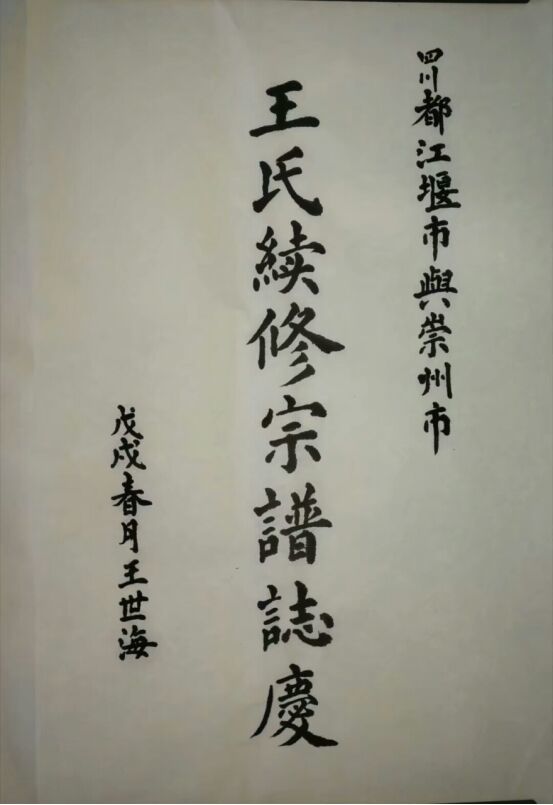 四川都江堰市與崇州市
王氏續修宗譜誌慶
戊戌春月王世海